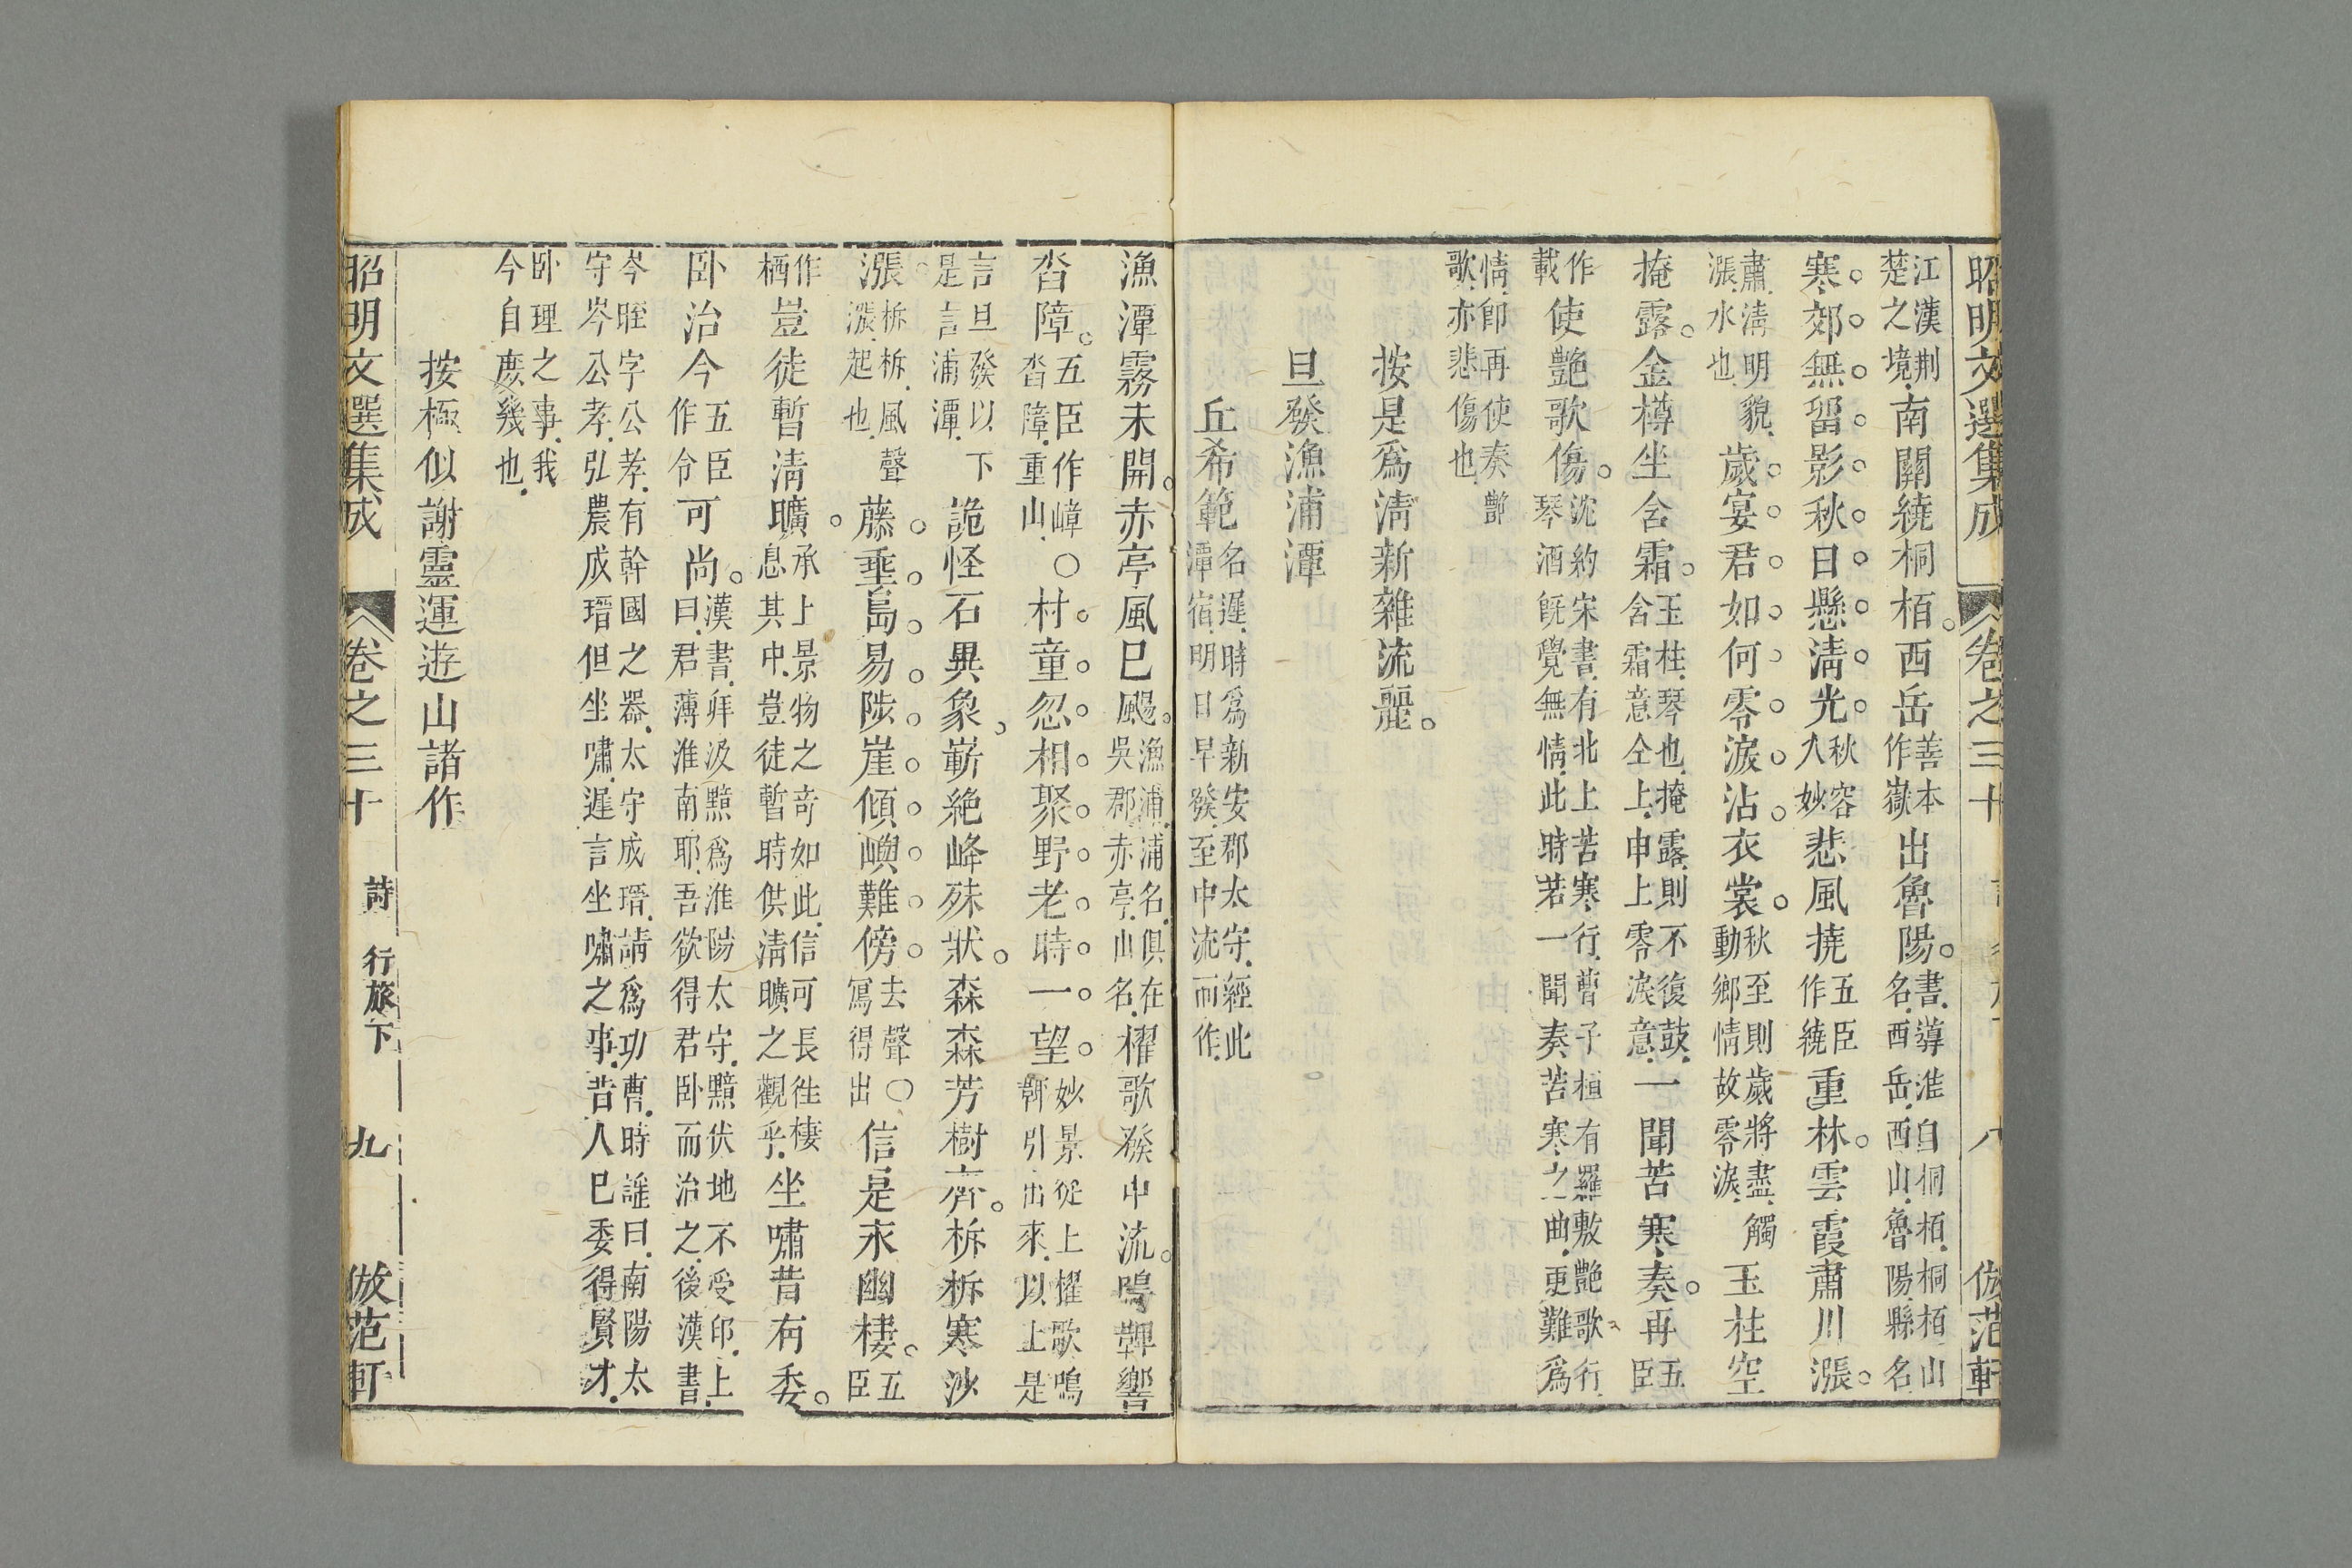 昭明文選集成 卷之三十 八 倣范軒
江漢荆楚之境南關繞桐栢。西岳善本作嶽出魯陽。書導淮自桐栢桐栢山名西岳西山魯陽縣名
寒郊無留影秋日懸淸光秋容入妙悲風撓五臣作繞重林。雲霞肅川漲。
肅淸明貌漲水也歲宴君如何零淚沾衣裳。秋至則歲將盡觸動鄉情故零淚玉柱空
掩露。金樽坐含霜。玉柱琴也掩露則不復鼓含霜意仝上申上零淚意一聞苦寒奏。再五臣
作載使艷歌傷。沈約宋書有北上苦寒行曹子植有羅敷艷歌行琴酒旣覺無情此時若一聞奏苦寒之曲更難爲
情卽再使奏艷歌亦悲傷也
按是爲淸新雜流麗。
旦發漁浦潭
丘希範名遲時爲新安郡太守經此潭宿明日早發至中流而作
漁潭霧未開。赤亭風已颺。漁浦浦名俱在吳郡赤亭山名櫂歌發中流。鳴鞞響
沓障。五臣作嶂沓障重山〇村童忽相聚野老時一望妙景從上櫂歌鳴鞞引出來以上是
言旦發以下是言浦潭詭怪石異象。嶄絶峰殊狀。森森芳樹齊。析析寒沙
漲。析析風聲漲起也藤垂島易陟崖傾嶼難傍去聲〇寫得出信是永幽棲。五臣
作栖豈徒暫淸曠。承上景物之竒如此信可長徃棲息其中豈徒暫時供淸曠之觀乎坐嘯昔有委。
卧治今五臣作令可尚。漢書拜汲黯爲淮陽太守黯伏地不受印上曰君薄淮南耶吾欲得君卧而治之後漢書
岑晊字公孝有幹國之器太守成瑨請爲功曹時謠曰南陽太守岑公孝弘農成瑨但坐嘯遲言坐嘯之事昔人已委得賢才
卧理之事我今自庶幾也
按極似謝靈運遊山諸作
昭明文選集成 卷之三十 詩 行旅下 九 倣范軒